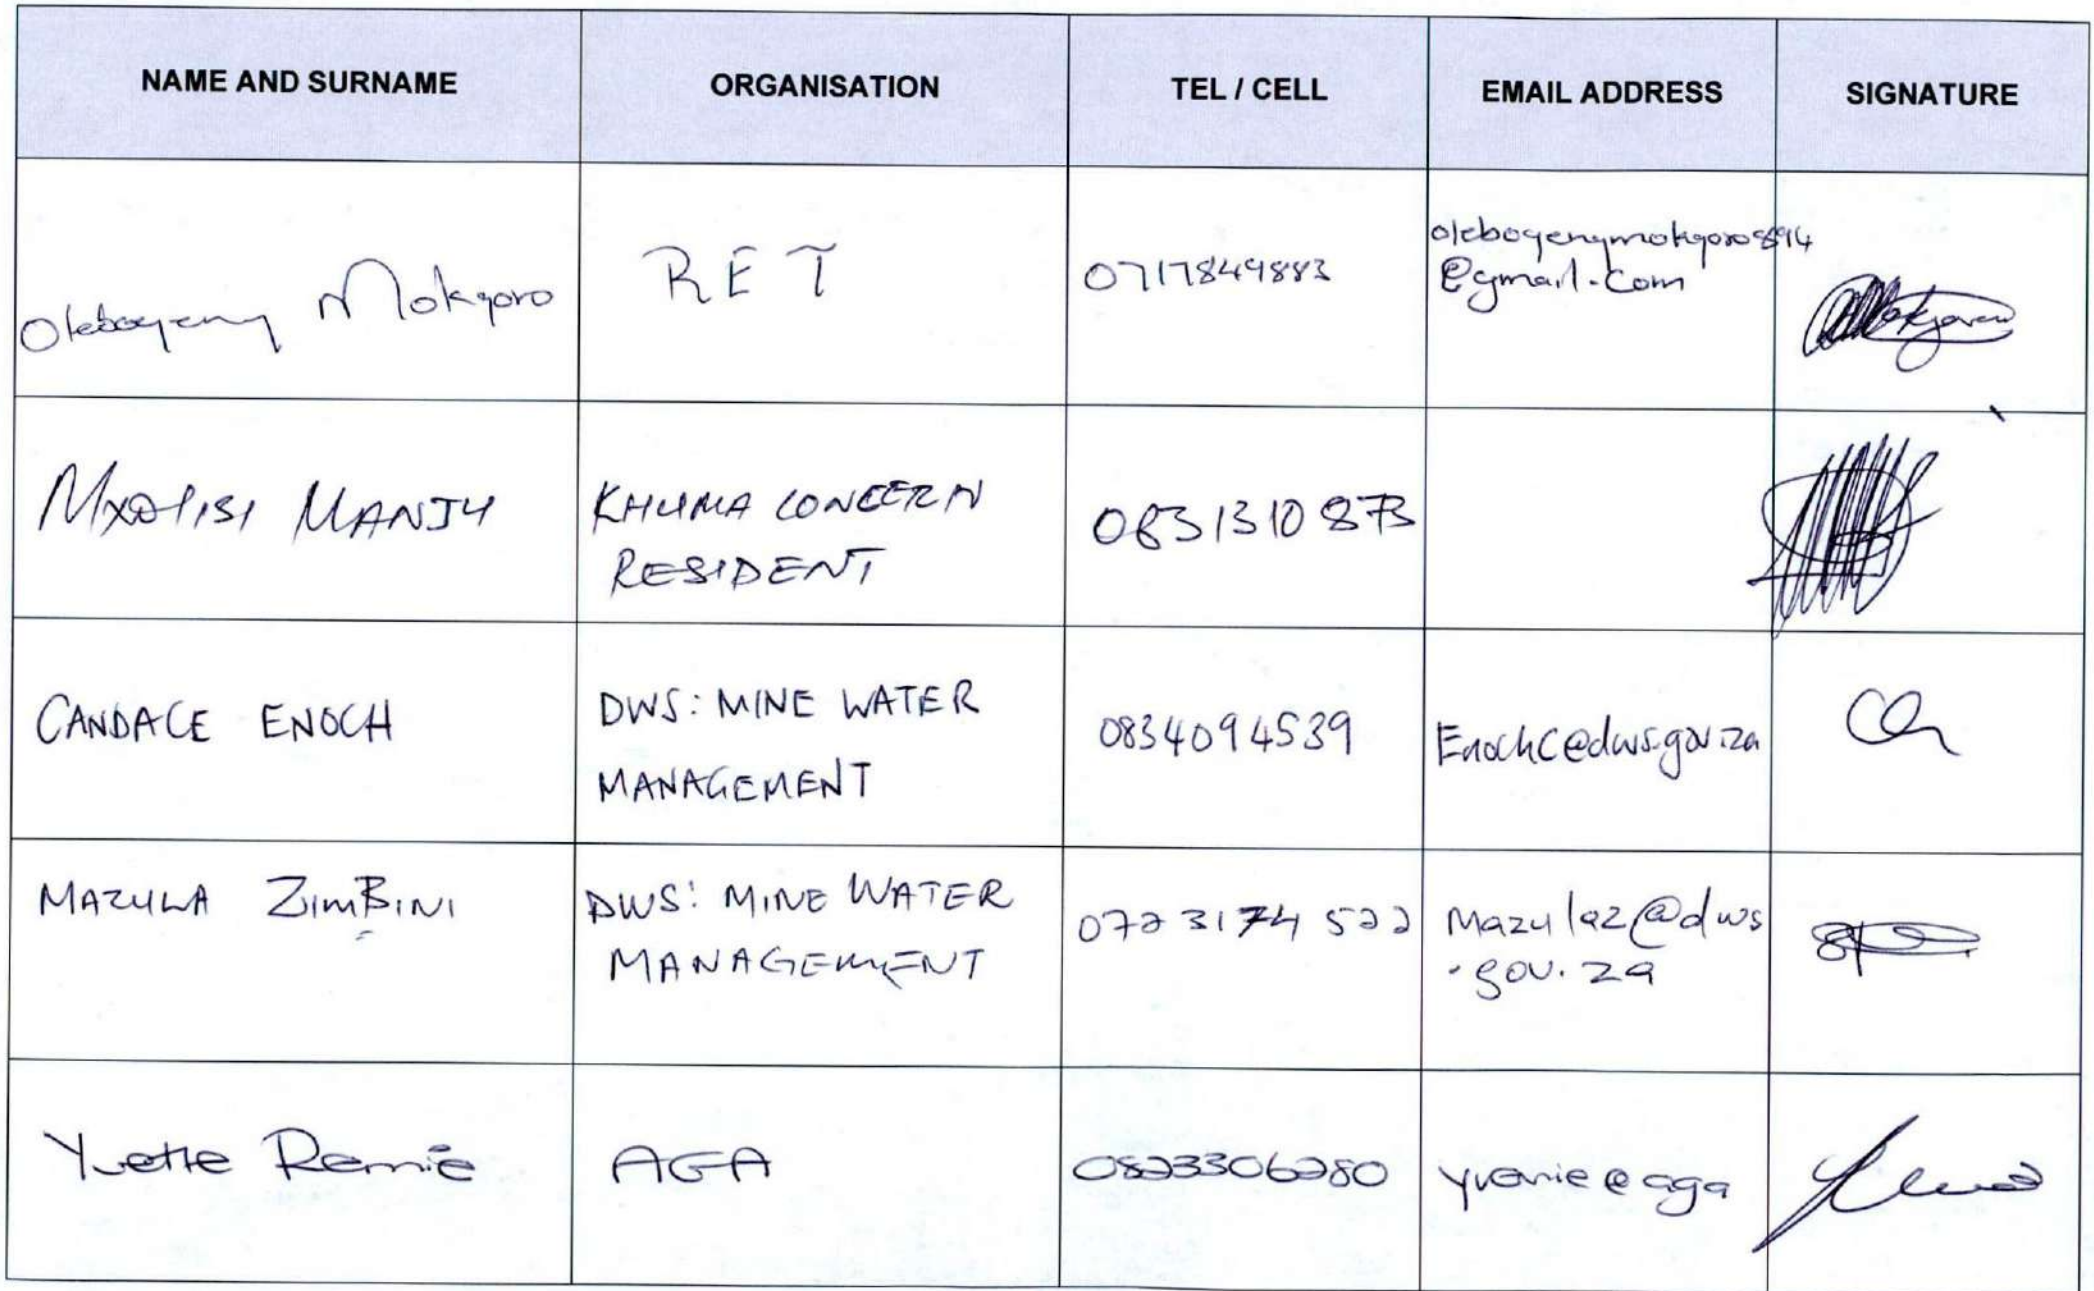 NAME AND SURNAME
ORGANISATION
TEL / CELL
EMAIL ADDRESS
SIGNATURE
Olebogeng Mokgoro
RET
0717849883
olebogengmokgoro894
@gmail.com
Mxolisi MANJU
KHUMA CONCERN
RESIDENT
0831310873
CANDACE ENOCH
DWS: MINE WATER
MANAGEMENT
0834094539
EnochC@dws.gov.za
MAZULA ZIMBINI
DWS: MINE WATER
MANAGEMENT
072 3174 522
Mazulaz@dws
.gov.za
Yvette
AGA
0823306280
@aga